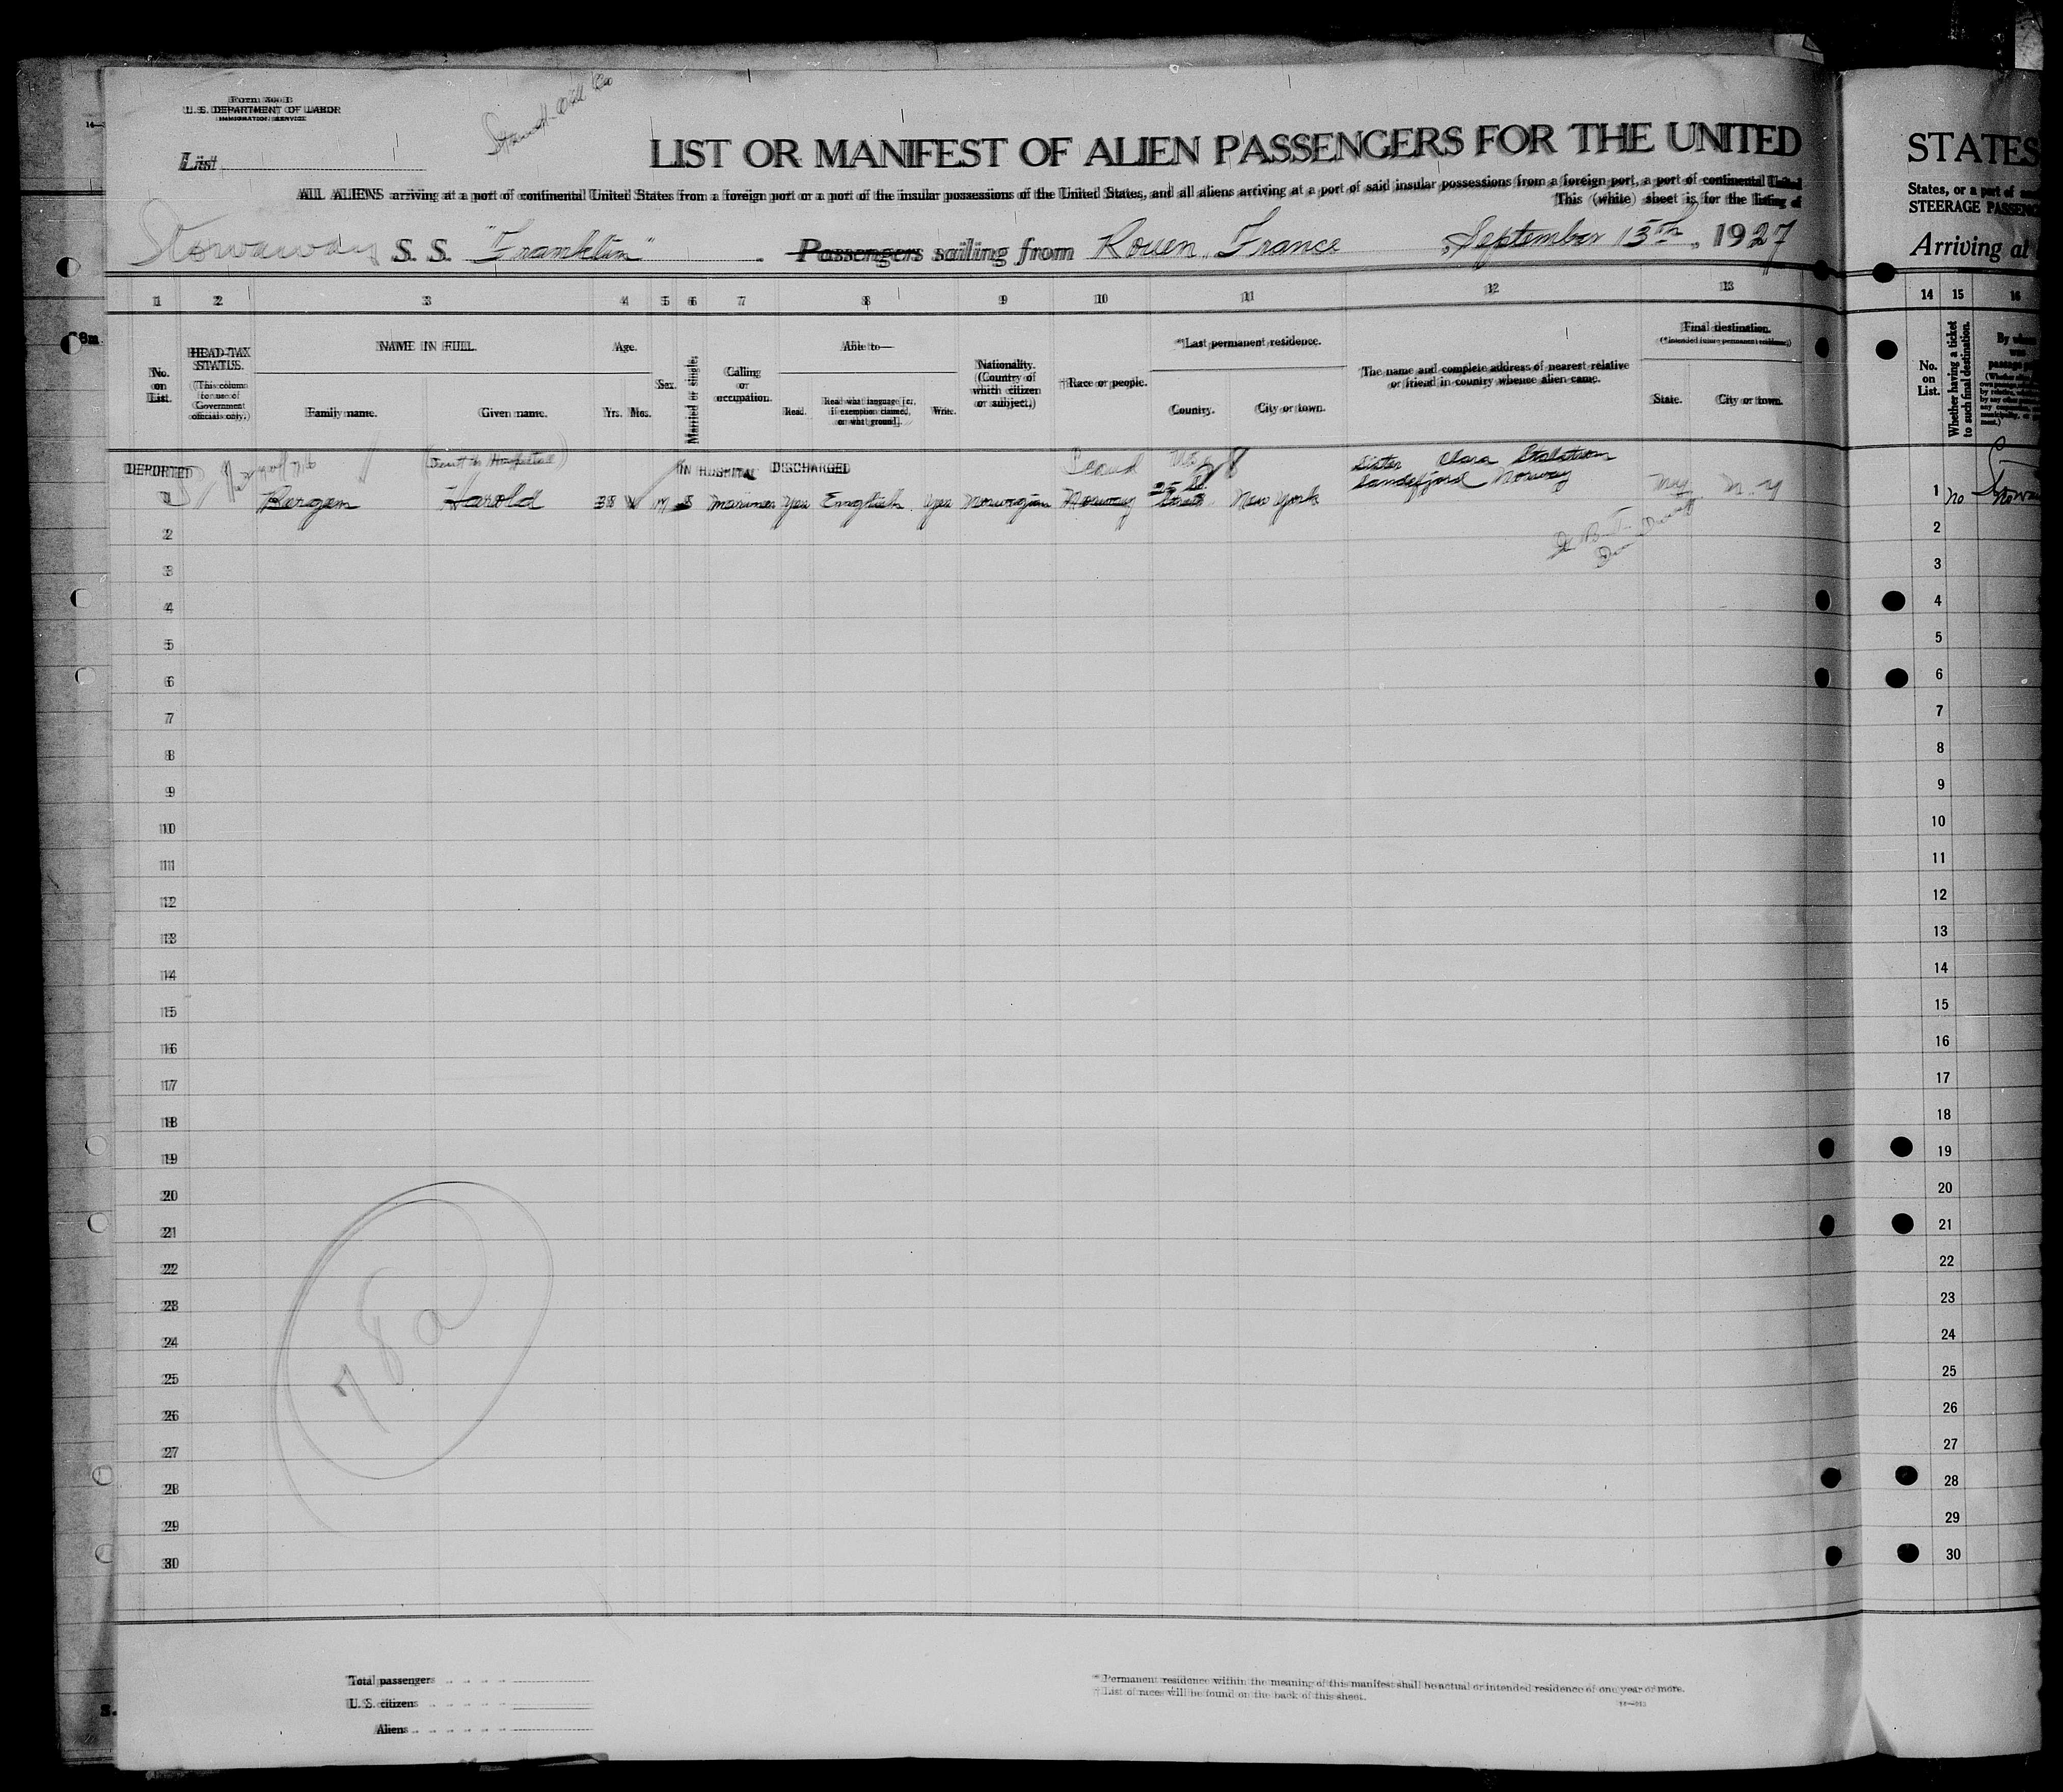 Form No. 1
U. S. DEPARTMENT OF LABOR
IMMIGRATION SERVICE
List
LIST OR MANIFEST OF ALIEN PASSENGERS FOR THE UNITED
ALL ALIENS arriving at a port of continental United States from a foreign port or a port of the insular possessions of the United States, and all aliens arriving at a port of said insular possessions from a foreign port, a port of continental United
This (white) sheet is for the listing of
Stowaway S. S. "Franklin" . Passengers sailing from Rouen, France , September 13th, 1927
1 2 3 4 5 6 7 8 9 10 11 12 13
No. on List.
HEAD-TAX STATUS.
(This column for use of Government officials only.)
NAME IN FULL
Family name. Given name.
Age.
Yrs. Mos.
Sex.
Married or single.
Calling or occupation.
Able to—
Read. Read what language [or, if exemption claimed, on what ground]. Write.
Nationality. (Country of which citizen or subject.)
†Race or people.
*Last permanent residence.
Country. City or town.
The name and complete address of nearest relative or friend in country whence alien came.
Final destination.
(*Intended future permanent residence.)
State. City or town.
DEPORTED (Sent to Hospital) IN HOSPITAL DISCHARGED Scand Sister Clara
1 Bergen Harold 38 M S Mariner Yes English Yes Norwegian Norway 25 St. New York Sandefjord Norway N. Y.
2
3
4
5
6
7
8
9
10
11
12
13
14
15
16
17
18
19
20
21
22
23
24
25
26
27
28
29
30
78a
Total passengers
U. S. citizens
Aliens
* Permanent residence within the meaning of this manifest shall be actual or intended residence of one year or more.
† List of races will be found on the back of this sheet.
STATES
States, or a port of
STEERAGE PASSENG
Arriving at
14 15 16
No. on List.
Whether having a ticket to such final destination.
By whom was passage
1 No Stowa
2
3
4
5
6
7
8
9
10
11
12
13
14
15
16
17
18
19
20
21
22
23
24
25
26
27
28
29
30